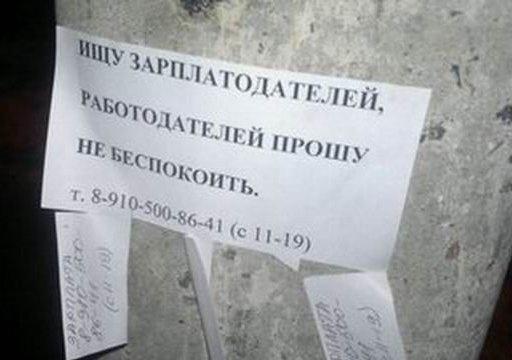 ИЩУ ЗАРПЛАТОДАТЕЛЕЙ,
РАБОТОДАТЕЛЕЙ ПРОШУ
НЕ БЕСПОКОИТЬ.
т. 8-910-500-86-41 (с 11-19)
ЗАРПЛАТА
8-910-500-
86-41
(с 11-19)